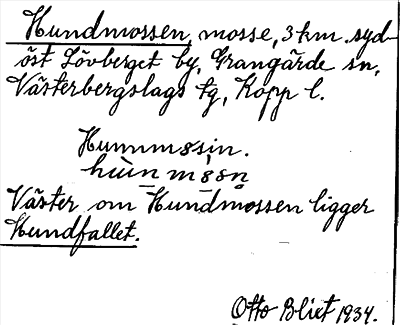 Hundmossen, mosse, 3 km. syd-
öst Lövberget by, Grangärde sn,
Västerbergslags tg, Kopp l.
Hunnmosin.
Väster om Hundmossen ligger
Hundfallet.
Otto Blixt 1934.